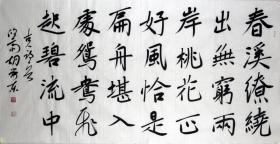 春溪繚繞
出無窮兩
岸桃花正
好風恰是
扁舟堪入
處鴛鴦飛
起碧流中